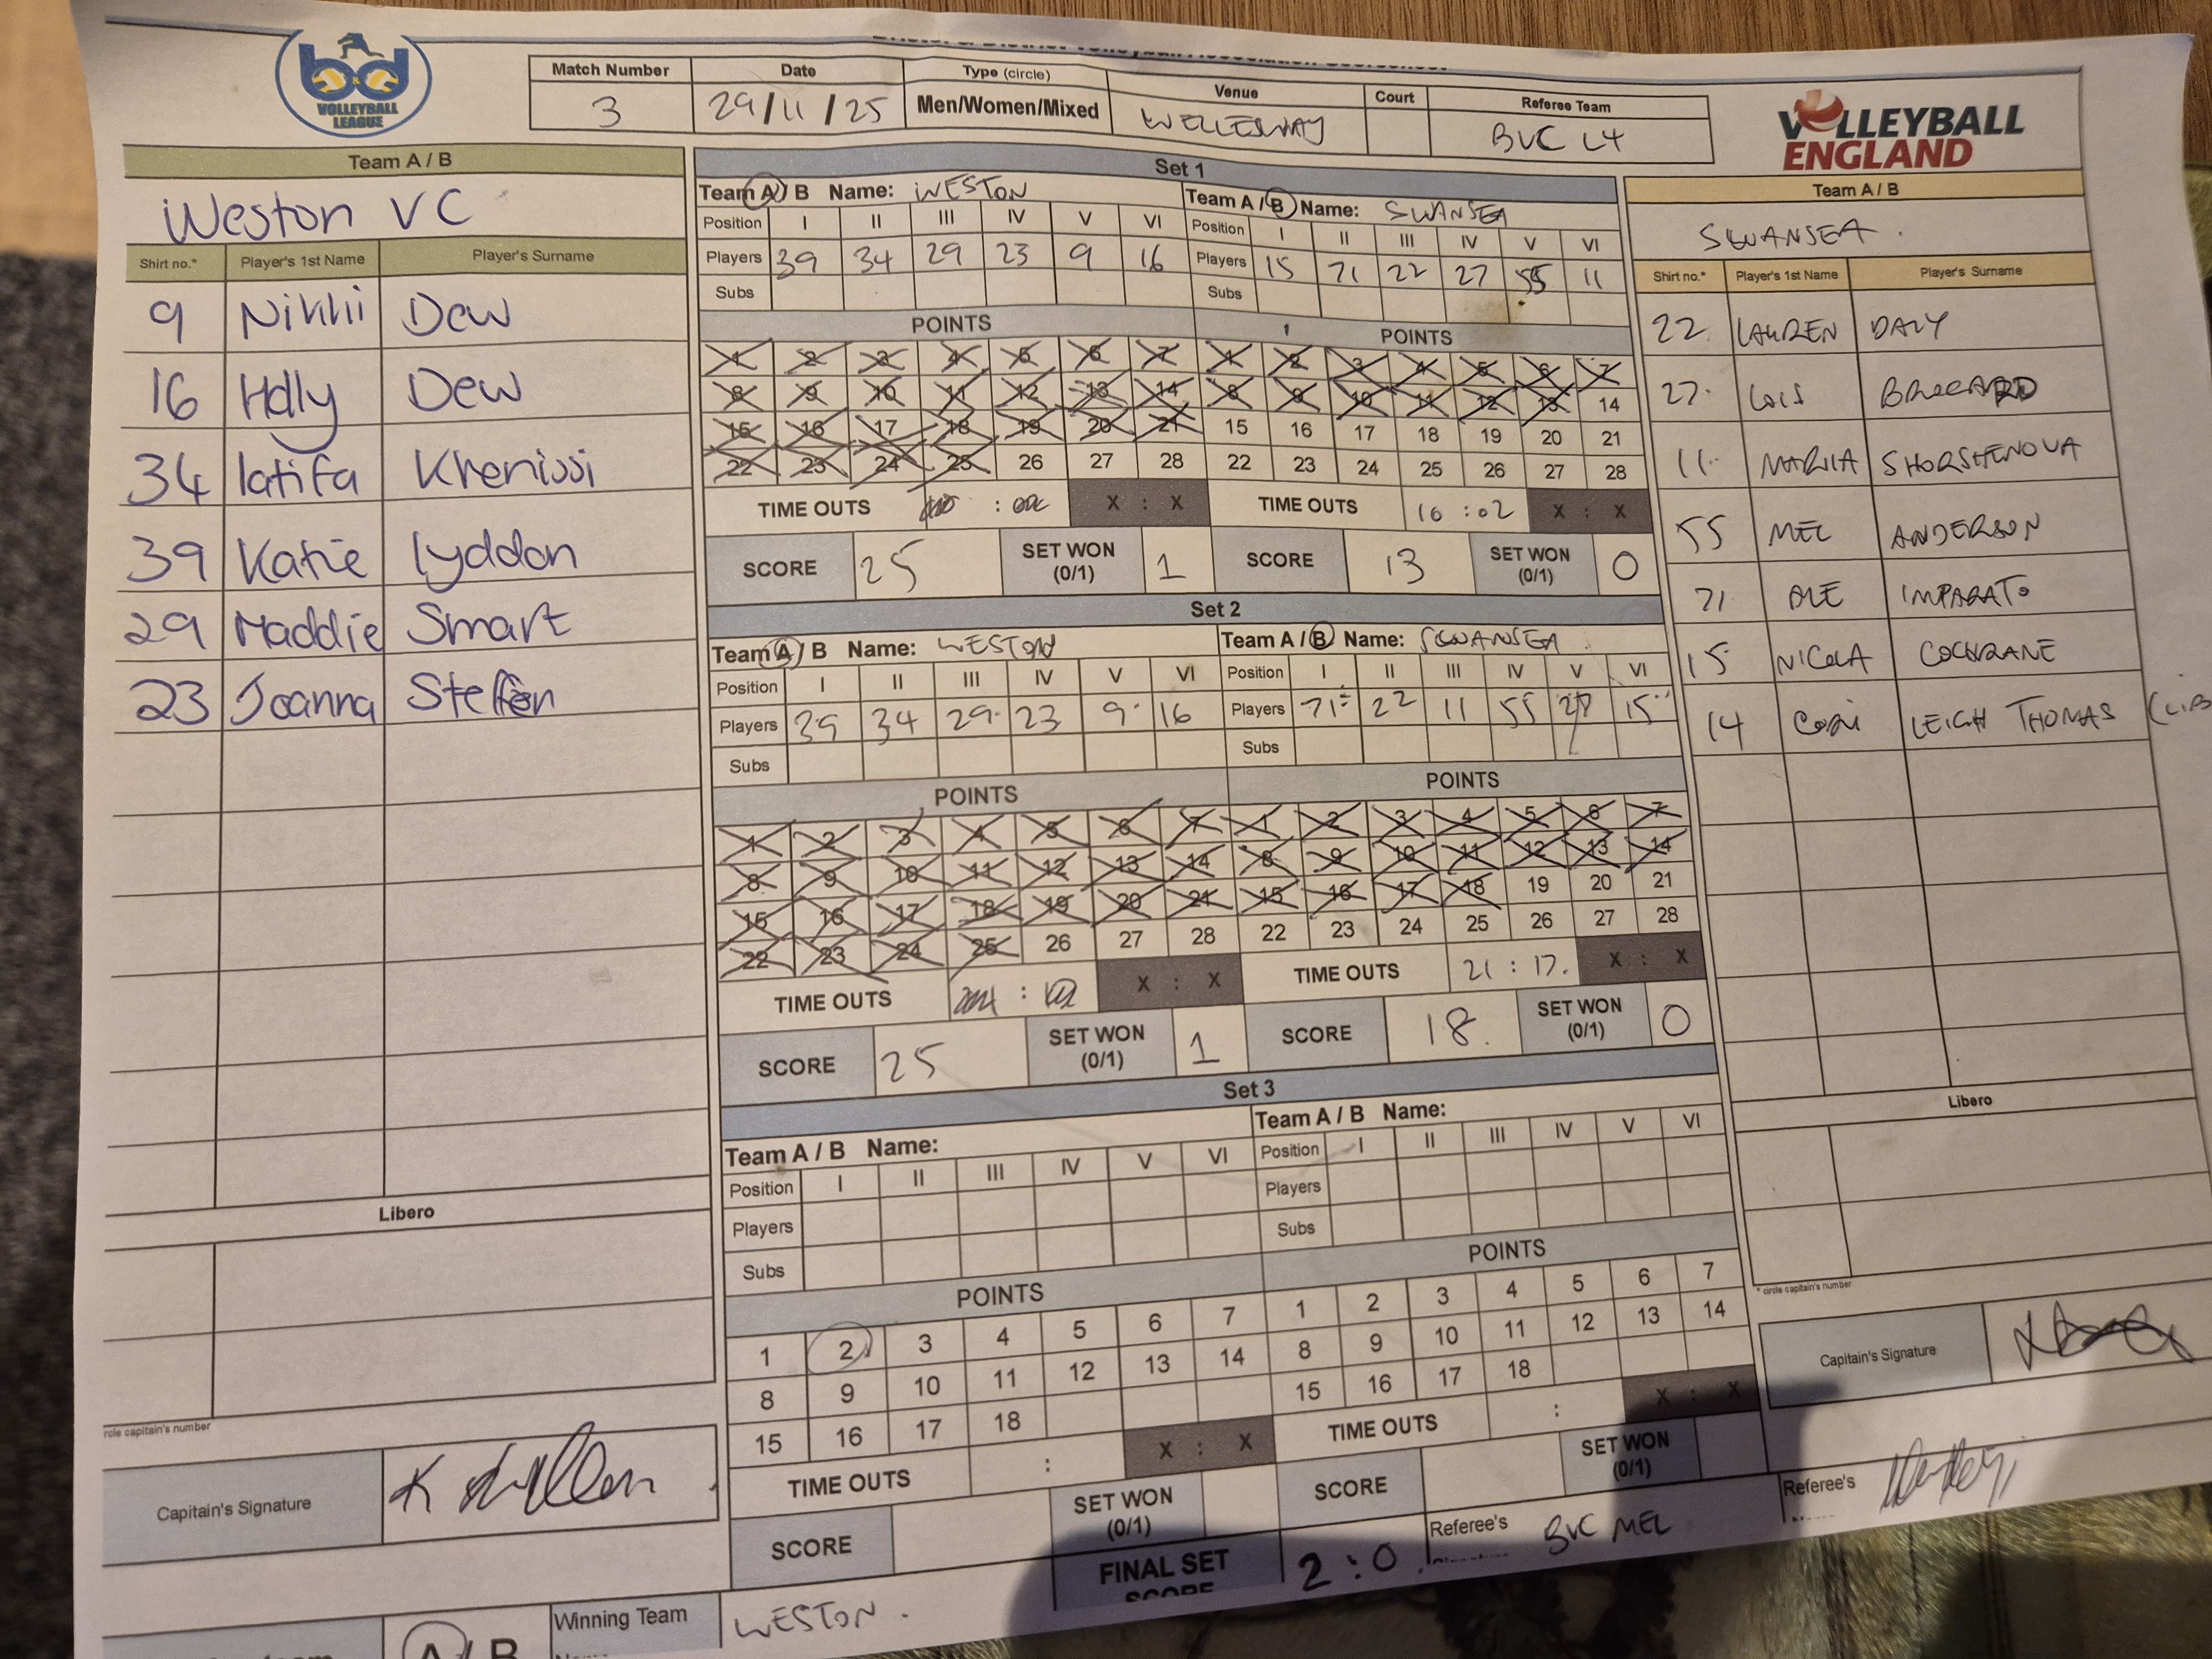 bd
VOLLEYBALL
LEAGUE
Bristol & District Volleyball Association Scoresheet
Match Number Date Type (circle) Venue Court Referee Team
3 29/11/25 Men/Women/Mixed BVC L4
VOLLEYBALL
ENGLAND
Team A / B
Weston VC
Shirt no.* Player's 1st Name Player's Surname
9 Nikki Dew
16 Holly Dew
34 latifa Khenissi
39 Katie lyddon
29 Maddie Smart
23 Joanna Steffen
Libero
rcle capitain's number
Capitain's Signature
Set 1
Team A / B Name: WESTON Team A / B Name: SWANSEA
Position I II III IV V VI Position I II III IV V VI
Players 39 34 29 23 9 16 Players 15 71 22 27 55 11
Subs Subs
POINTS POINTS
1 2 3 4 5 6 7 1 2 3 4 5 6 7
8 9 10 11 12 13 14 8 9 10 11 12 13 14
15 16 17 18 19 20 21 15 16 17 18 19 20 21
22 23 24 25 26 27 28 22 23 24 25 26 27 28
TIME OUTS : X : X TIME OUTS 16 : 02 X : X
SCORE 25 SET WON (0/1) 1 SCORE 13 SET WON (0/1) 0
Set 2
Team A / B Name: WESTON Team A / B Name: SWANSEA
Position I II III IV V VI Position I II III IV V VI
Players 39 34 29 23 9 16 Players 71 22 11 55 27 15
Subs Subs
POINTS POINTS
1 2 3 4 5 6 7 1 2 3 4 5 6 7
8 9 10 11 12 13 14 8 9 10 11 12 13 14
15 16 17 18 19 20 21 15 16 17 18 19 20 21
22 23 24 25 26 27 28 22 23 24 25 26 27 28
TIME OUTS : X : X TIME OUTS 21 : 17. X : X
SCORE 25 SET WON (0/1) 1 SCORE 18. SET WON (0/1) 0
Set 3
Team A / B Name: Team A / B Name:
Position I II III IV V VI Position I II III IV V VI
Players Players
Subs Subs
POINTS POINTS
1 2 3 4 5 6 7 1 2 3 4 5 6 7
8 9 10 11 12 13 14 8 9 10 11 12 13 14
15 16 17 18 15 16 17 18
TIME OUTS : X : X TIME OUTS : X : X
SCORE SET WON (0/1) SCORE SET WON (0/1)
FINAL SET SCORE 2 : 0.
Referee's BVC MEL
Referee's
A / B Winning Team WESTON.
Team A / B
SWANSEA.
Shirt no.* Player's 1st Name Player's Surname
22. LAUREN DALY
27. LOIS
11. MARIIA SHORSHENOVA
55 MEL ANDERSON
71 ALE IMPARATO
15 NICOLA COCHRANE
14 LEIGH THOMAS (LIB
Libero
* circle capitain's number
Capitain's Signature